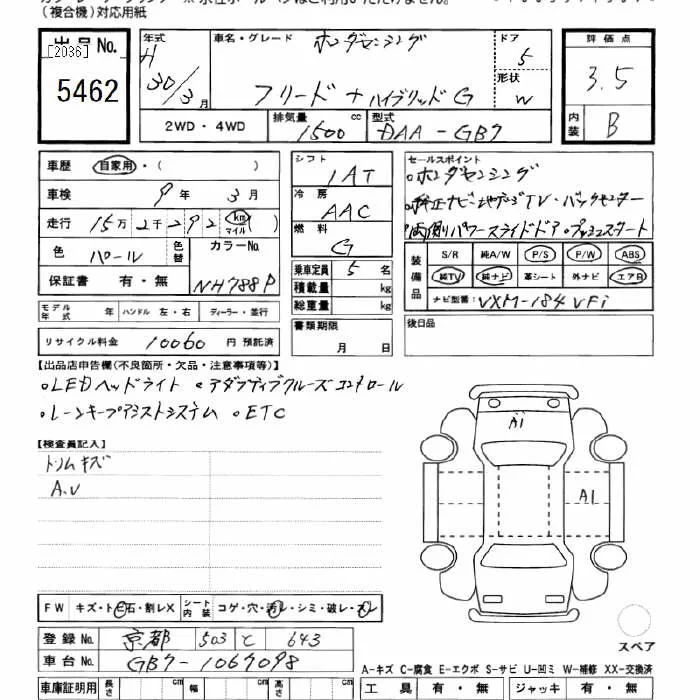 (複合機)対応用紙
出品No.
[2036]
5462
年式
H
30/3月
車名・グレード
ホンダセンシング
フリード+ハイブリッドG
ドア
5
形状
W
評価点
3.5
内装
B
2WD・4WD
排気量
1500
cc
型式
DAA-GB7
車歴
自家用・( )
車検
9年 3月
走行
15万 2千 292
km
マイル
色
パール
色替
カラーNo.
NH788P
保証書
有・無
モデル年式
年
ハンドル
左・右
ディーラー・並行
リサイクル料金
10060
円 預託済
シフト
IAT
冷房
AAC
燃料
G
乗車定員
5
名
積載量
kg
総重量
kg
書類期限
月 日
セールスポイント
・ホンダセンシング
・純正ナビ・地デジTV・バックモニター
・両側パワースライドドア・プッシュスタート
装備品
S/R
純A/W
P/S
P/W
ABS
純TV
純ナビ
革シート
外ナビ
エアB
ナビ型番:
VXM-184VFi
後日品
【出品店申告欄(不良箇所・欠品・注意事項等)】
・LEDヘッドライト ・アダプティブクルーズコントロール
・レーンキープアシストシステム ・ETC
【検査員記入】
トリムキズ
A.U
A1
A1
FW
キズ・トビ石・割レX
シート内装
コゲ・穴・汚レ・シミ・破レ・スレ
登録No.
京都
503
と
643
車台No.
GB7-1067098
スペア
A-キズ C-腐食 E-エクボ S-サビ U-凹ミ W-補修 XX-交換済
車庫証明用
長さ
cm
幅
cm
高さ
cm
工具
有・無
ジャッキ
有・無